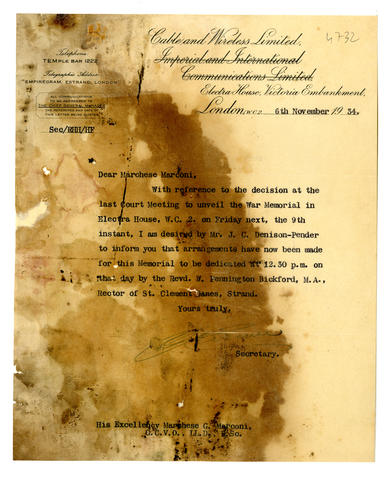 4732
Cable and Wireless Limited,
Imperial and International
Communications Limited.
Electra House, Victoria Embankment,
London, W.C.2. 6th November 1934.
Telephone
TEMPLE BAR 1222
Telegraphic Address
EMPIREGRAM, ESTRAND, LONDON
ALL COMMUNICATIONS
TO BE ADDRESSED TO
THE CHIEF GENERAL MANAGER
THE REFERENCE AND DATE OF
THIS LETTER BEING QUOTED
Sec/RHI/HF
Dear Marchese Marconi,
With reference to the decision at the
last Court Meeting to unveil the War Memorial in
Electra House, W.C. 2. on Friday next, the 9th
instant, I am desired by Mr. J. C. Denison-Pender
to inform you that arrangements have now been made
for this Memorial to be dedicated at 12.30 p.m. on
that day by the Revd. W. Pennington Bickford, M.A.,
Rector of St. Clement Danes, Strand.
Yours truly,
Secretary.
His Excellency Marchese G. Marconi,
G.C.V.O., LL.D.,